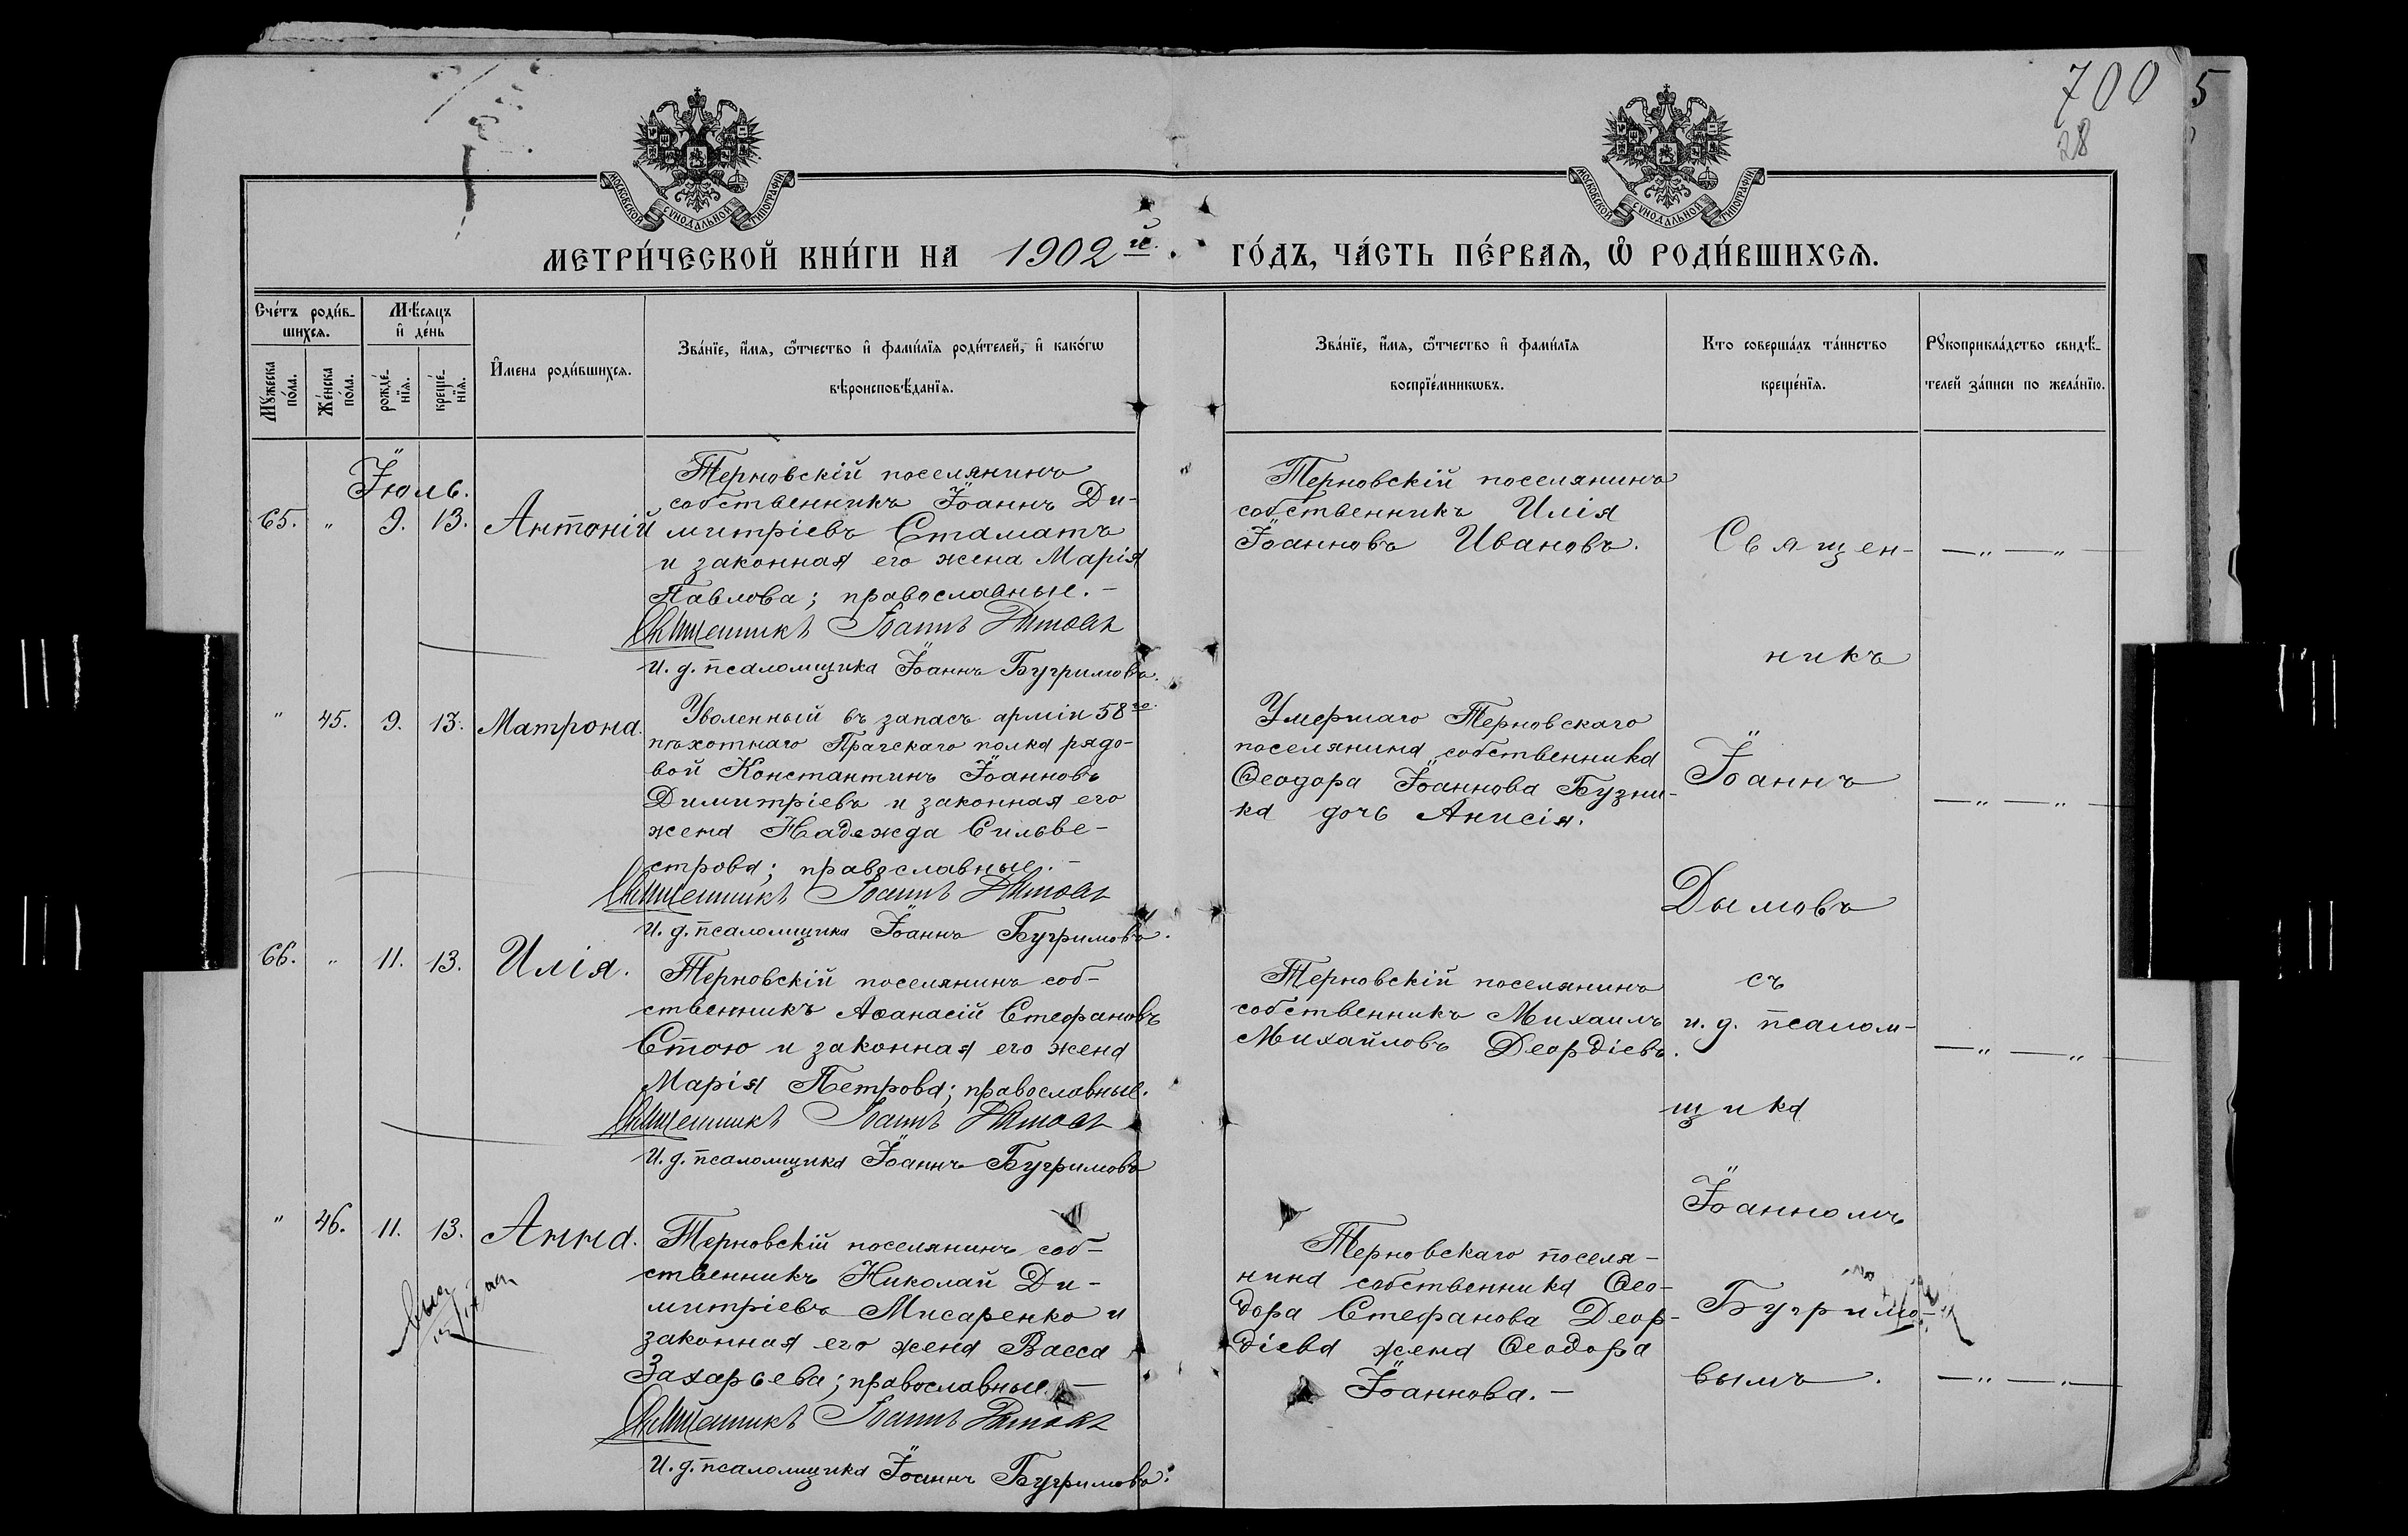 700
5
28
МОСКОВСКОЙ СУНОДАЛЬНОЙ ТИПОГРАФІИ
МОСКОВСКОЙ СУНОДАЛЬНОЙ ТИПОГРАФІИ
МЕТРИ́ЧЕСКОЙ КНИ́ГИ НА 1902й.
ГО́ДЪ, ЧА́СТЬ ПЕ́РВАЯ, Ѡ РОДИ́ВШИХСЯ.
Сче́тъ роди́в-
шихся.
Мꙋ́жеска по́ла.
Же́нска по́ла.
Мѣ́сяцъ
и҆ де́нь
рожде́-
нїя.
креще́-
нїя.
И҆мена роди́вшихся.
Зва́нїе, и҆́мя, ѻ҆́тчество и҆ фами́лїя роди́телей, и҆ како́гѡ
вѣроисповѣ́данїя.
Зва́нїе, и҆́мя, ѻ҆́тчество и҆ фами́лїя
воспрїе́мникѡвъ.
Кто соверша́лъ та́инство
креще́нїя.
Рꙋкоприкла́дство свидѣ́-
телей за́писи по жела́нїю.
Іюль.
65. " 9. 13. Антоній
Терновскій поселянинъ
собственникъ Іоаннъ Ди-
митріевъ Стаматъ
и законная его жена Марія
Павлова; православные.-
Священникъ Іоаннъ Дымовъ
И. д. псаломщика Іоаннъ Бугримовъ.
Терновскій поселянинъ
собственникъ Илія
Іоанновъ Ивановъ.
" 45. 9. 13. Матрона.
Уволенный въ запасъ арміи 58го
пѣхотнаго Прагскаго полка рядо-
вой Константинъ Іоанновъ
Димитріевъ и законная его
жена Надежда Сильве-
строва; православные.-
Священникъ Іоаннъ Дымовъ
И. д. псаломщика Іоаннъ Бугримовъ.
Умершаго Терновскаго
поселянина собственника
Ѳеодора Іоаннова Бузни-
ка дочь Анисія.
66. " 11. 13. Илія.
Терновскій поселянинъ соб-
ственникъ Аѳанасій Стефановъ
Стою и законная его жена
Марія Петрова; православные.
Священникъ Іоаннъ Дымовъ
И. д. псаломщика Іоаннъ Бугримовъ
Терновскій поселянинъ
собственникъ Михаилъ
Михайловъ Деордіевъ.
" 46. 11. 13. Анна.
Терновскій поселянинъ соб-
ственникъ Николай Ди-
митріевъ Мисаренко и
законная его жена Васса
Захарьева; православные.-
Священникъ Іоаннъ Дымовъ
И. д. псаломщика Іоаннъ Бугримовъ.
Терновскаго поселя-
нина собственника Ѳео-
дора Стефанова Деор-
діева жена Ѳеодора
Іоаннова.-
Священ-
никъ
Іоаннъ
Дымовъ
съ
и. д. псалом-
щика
Іоанномъ
Бугримо-
вымъ.
—"—"—
—"—"—
—"—"
—"—"—